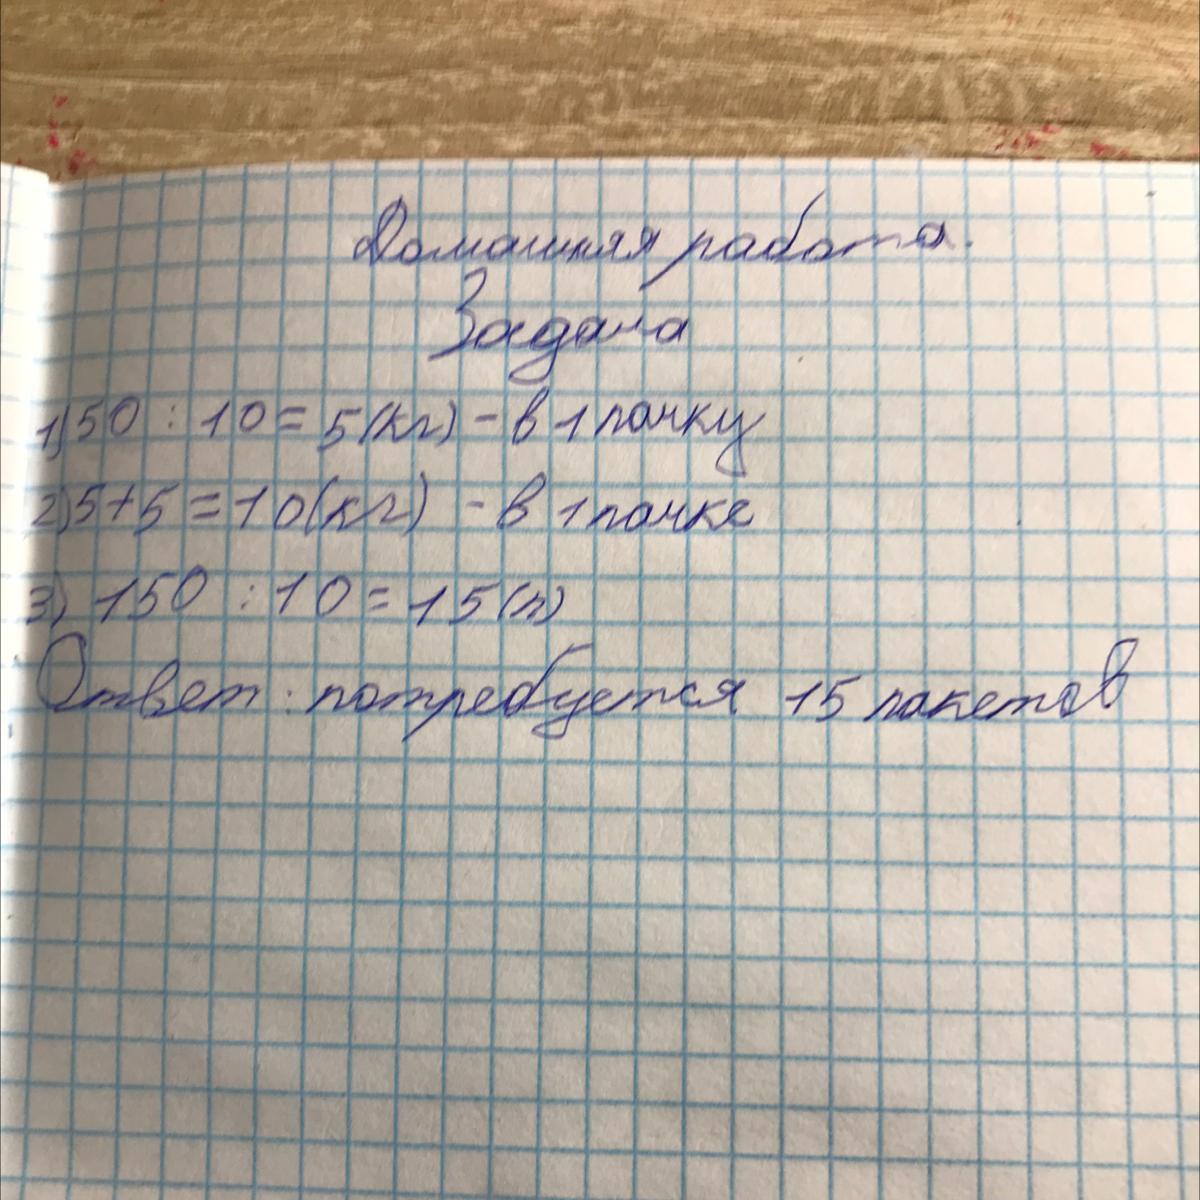 Домашняя работа.
Задача
1) 50 : 10 = 5 (кг) - в 1 пачку
2) 5 + 5 = 10 (кг) - в 1 пачке
3) 150 : 10 = 15 (п)
Ответ : потребуется 15 пакетов